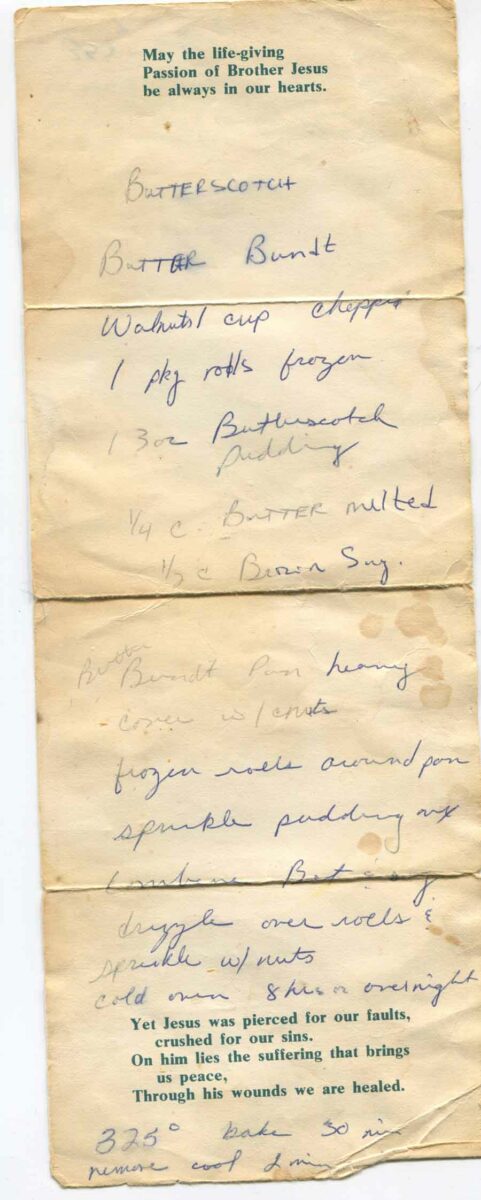 May the life-giving
Passion of Brother Jesus
be always in our hearts.
BUTTERSCOTCH
BUTTER Bundt
Walnuts 1 cup chopped
1 pkg rolls frozen
1 3oz Butterscotch
pudding
1/4 c. BUTTER melted
1/2 c Brown Sug.
Butter
Bundt Pan heavy
cover w/ nuts
frozen rolls around pan
sprinkle pudding mix
Combine But & sug
drizzle over rolls &
sprinkle w/ nuts
cold oven 8 hrs or overnight
Yet Jesus was pierced for our faults,
crushed for our sins.
On him lies the suffering that brings
us peace,
Through his wounds we are healed.
325° bake 30 min
remove cool 2 min